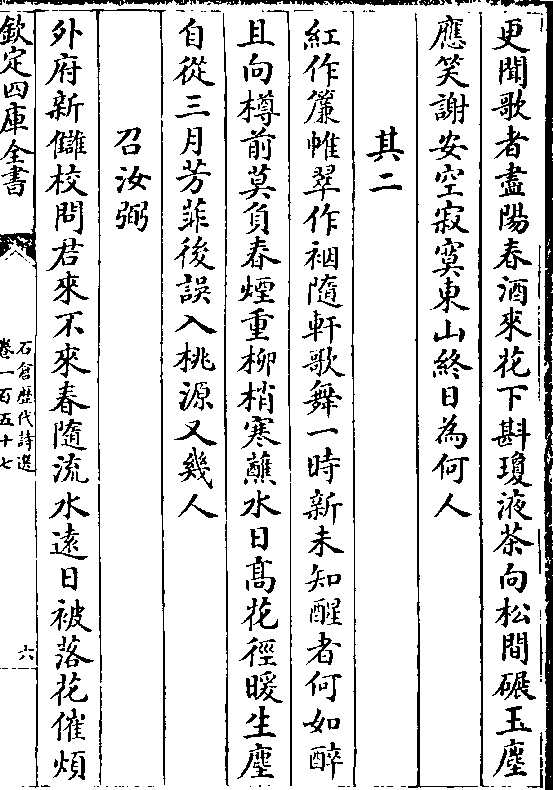 更聞歌者盡陽春酒來花下斟瓊液茶向松間碾玉塵
應笑謝安空寂寞東山終日為何人
其二
紅作簾帷翠作裀隨軒歌舞一時新未知醒者何如醉
且向樽前莫負春煙重柳梢寒蘸水日髙花徑暖生塵
自從三月芳菲後誤入桃源又幾人
召汝弼
外府新讎校問君來不來春隨流水逺日被落花催煩
欽定四庫全書
石倉歴代詩選
卷一百五十七
六